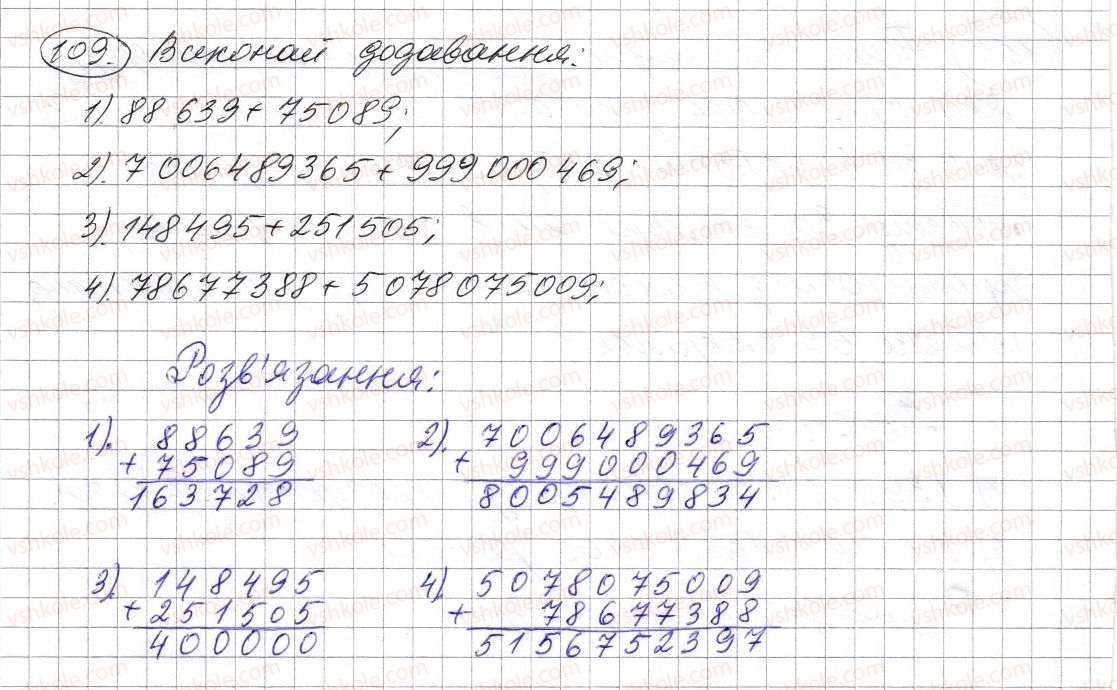 109. Виконай додавання:
1). 88 639 + 75089;
2). 7 006489365 + 999 000 469;
3). 148 495 + 251 505;
4). 78677388 + 5 078 075009;
Розв'язання:
1). 88639
+ 75089
163728
2). 7006489365
+ 999000469
8005489834
3). 148495
+ 251505
400000
4). 5078075009
+ 78677388
5156752397